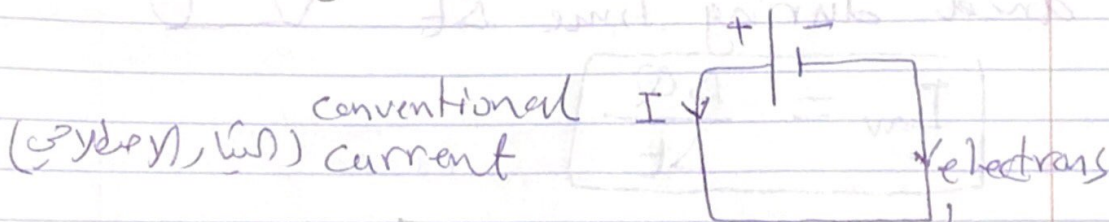 + -
conventional I
(التيار الاصطلاحي) current
electrons